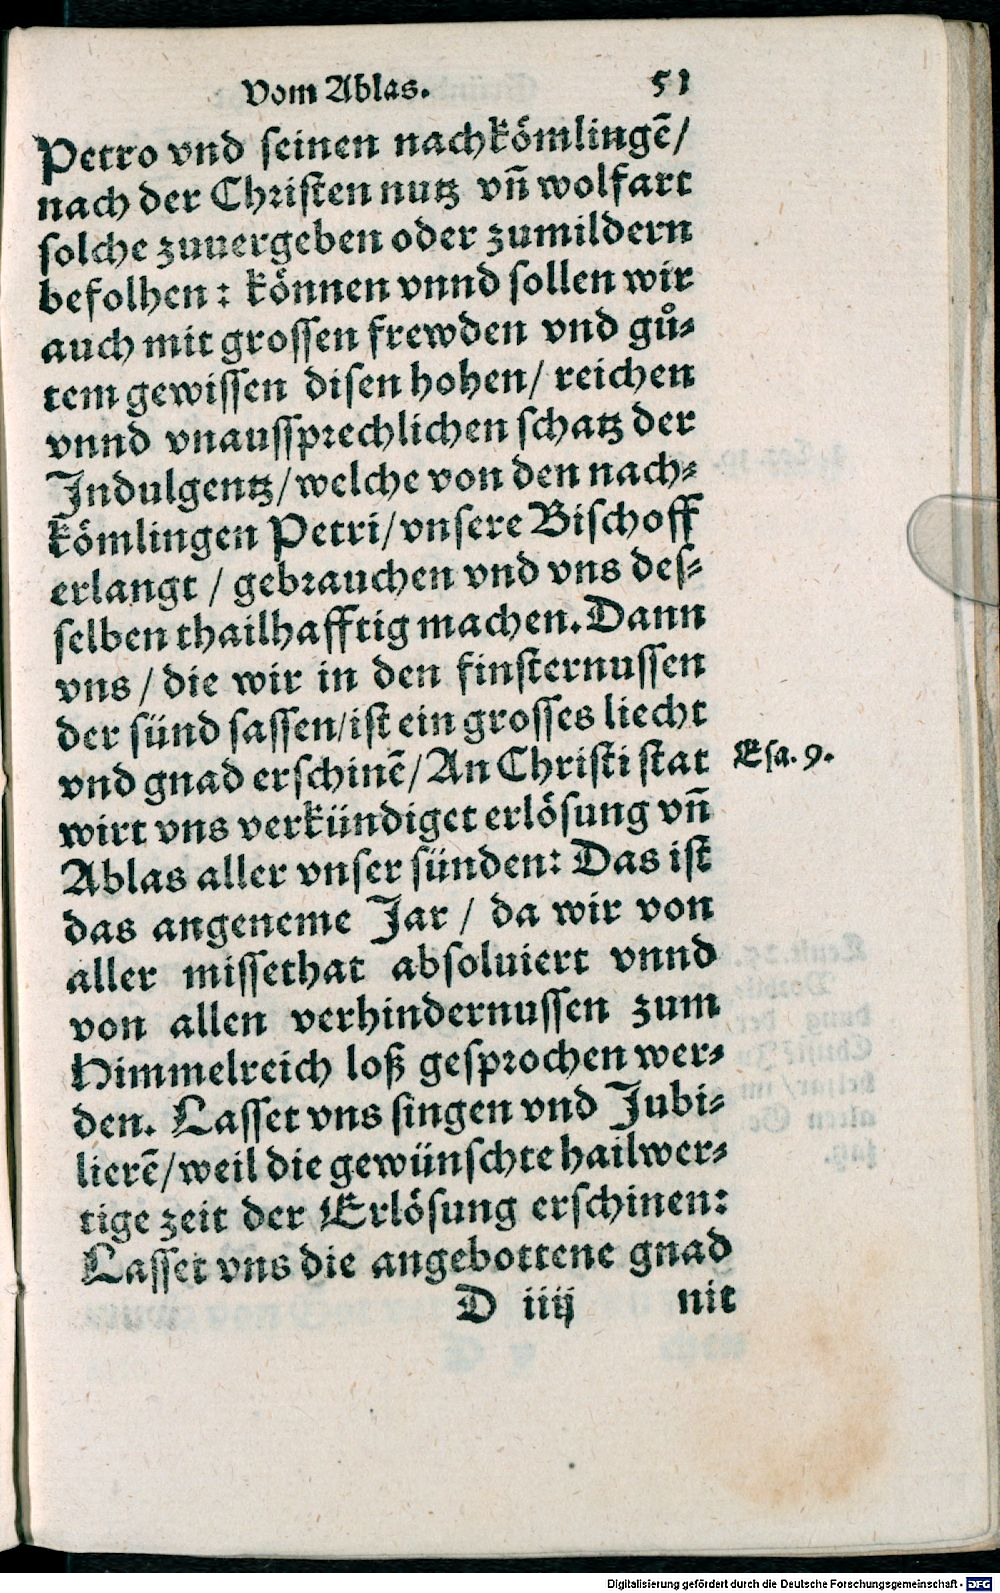 Vom Ablas. 51
Petro vnd seinen nachkömlingē/
nach der Christen nutz vn̄ wolfart
solche zuuergeben oder zumildern
befolhen: können vnnd sollen wir
auch mit grossen frewden vnd gů-
tem gewissen disen hohen/ reichen
vnnd vnaussprechlichen schatz der
Indulgentz/welche von den nach-
kömlingen Petri/vnsere Bischoff
erlangt / gebrauchen vnd vns des-
selben thailhafftig machen. Dann
vns / die wir in den finsternussen
der sünd sassen/ist ein grosses liecht
vnd gnad erschinē/An Christi stat
Esa. 9.
wirt vns verkündiget erlösung vn̄
Ablas aller vnser sünden: Das ist
das angeneme Jar / da wir von
aller missethat absoluiert vnnd
von allen verhindernussen zum
Himmelreich loß gesprochen wer-
den. Lasset vns singen vnd Jubi-
lierē/weil die gewünschte hailwer-
tige zeit der Erlösung erschinen:
Lasset vns die angebottene gnad
D iiij nit
Digitalisierung gefördert durch die Deutsche Forschungsgemeinschaft - DFG